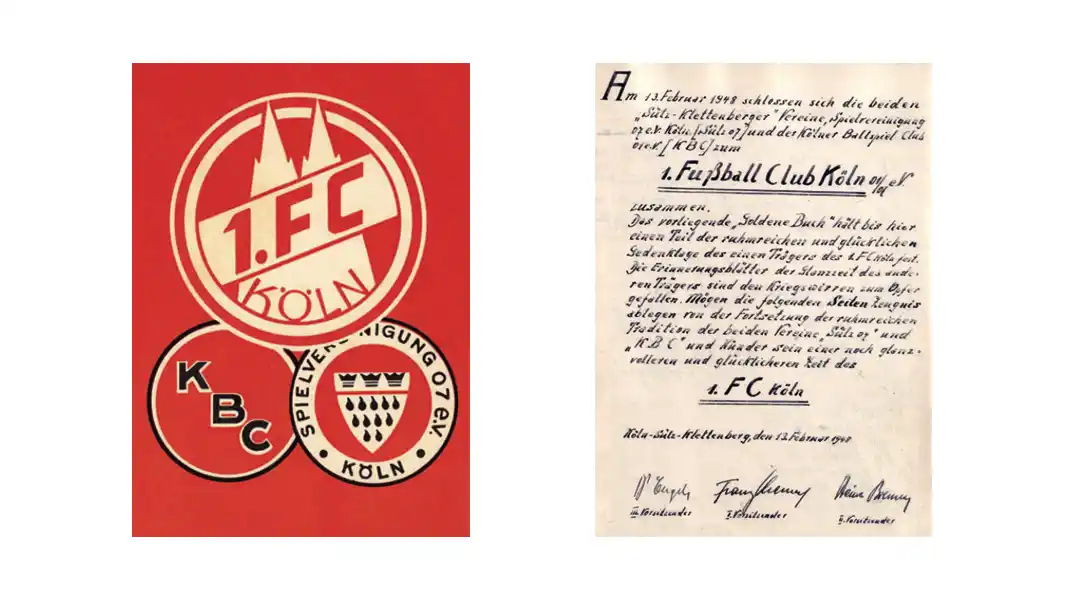 1.FC
KÖLN
KBC
SPIELVEREINIGUNG 07 e.V.
KÖLN
Am 13. Februar 1948 schlossen sich die beiden
„Sülz-Klettenberger" Vereine, Spielvereinigung
07 e.V. Köln [Sülz 07] und der Kölner Ballspiel Club
01 e.V. [KBC] zum
1. Fußball Club Köln 01/07 e.V.
zusammen.
Das vorliegende „Goldene Buch" hält bis hier
einen Teil der ruhmreichen und glücklichen
Gedenktage des einen Trägers des 1. FC Köln fest.
Die Erinnerungsblätter der Glanzzeit des ande-
ren Trägers sind den Kriegswirren zum Opfer
gefallen. Mögen die folgenden Seiten Zeugnis
ablegen von der Fortsetzung der ruhmreichen
Tradition der beiden Vereine „Sülz 07" und
„KBC" und Künder sein einer noch glanz-
volleren und glücklicheren Zeit des
1. FC Köln
Köln-Sülz-Klettenberg, den 13. Februar 1948
Franz
III. Vorsitzender I. Vorsitzender II. Vorsitzender